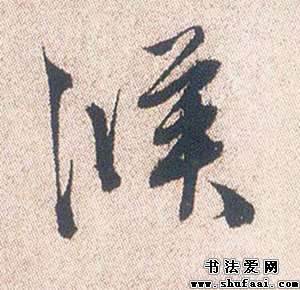 濮
书法爱网
www.shufaai.com